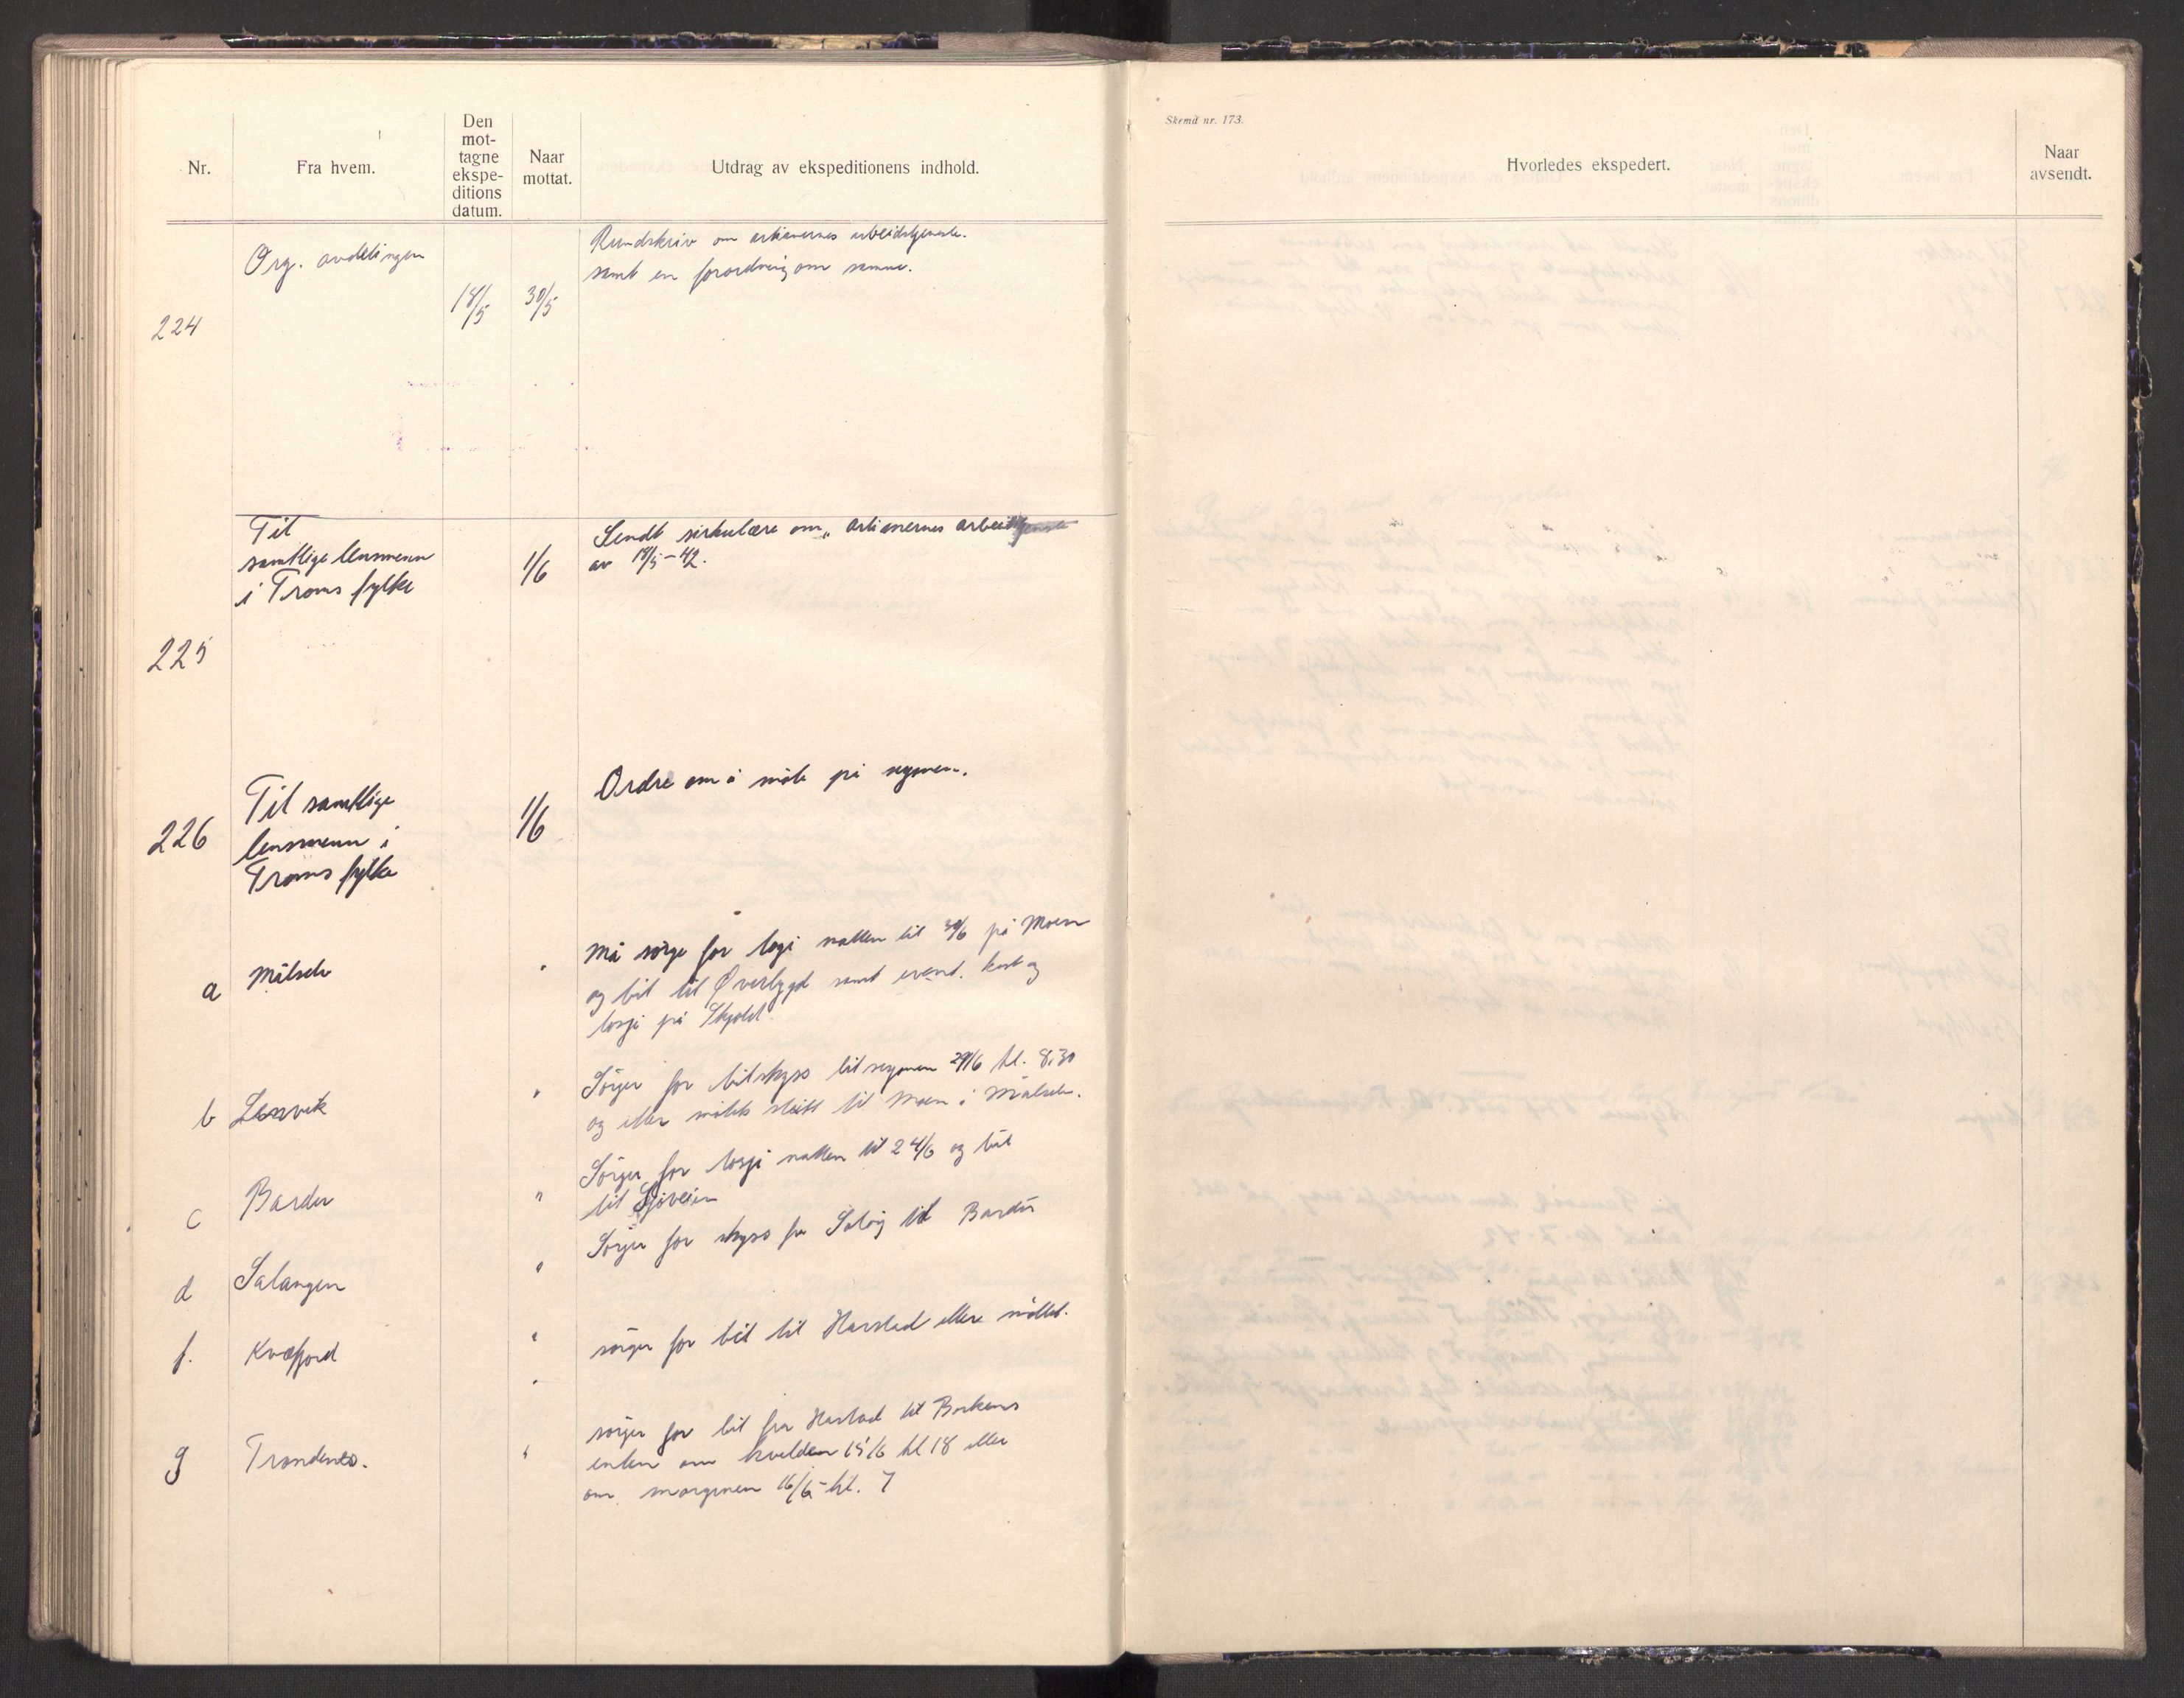 Nr.
Fra hvem.
Den
mot-
tagne
ekspe-
ditions
datum.
Naar
mottat.
Utdrag av ekspeditionens indhold.
Skema nr. 173.
Hvorledes ekspedert.
Naar
avsendt.
224
Org. avdelingen
18/5
30/5
Rundskriv om artianernes arbeidstjeneste.
samt en forordning om samme.
225
Til
samtlige lensmenn
i Troms fylke
1/6
Sendt sirkulære om „artianernes arbeidstjeneste
av 18/5-42.
226
Til samtlige
lensmenn i
Troms fylke
1/6
Ordre om å møte på sesjonen.
a Målselv
"
Må sörge for logi natten til 30/6 på Moen
og bil til Øverbygd samt event. kost og
losji på Skjold.
b Lenvik
"
Sörger for bilskyss til sesjonen 29/6 kl. 8.30
og etter møtets slutt til Moen i Målselv.
c Bardu
"
Sörger for losji natten til 24/6 og bil
til Sjöveien
d Salangen
"
Sörger for skyss fra til Bardu
f. Kvæfjord
"
sörger for bil til Harstad eller
g Trondenes.
"
sörger for bil fra Harstad til Borkenes
enten om kvelden 15/6 kl 18 eller
om morgenen 16/6 kl. 7